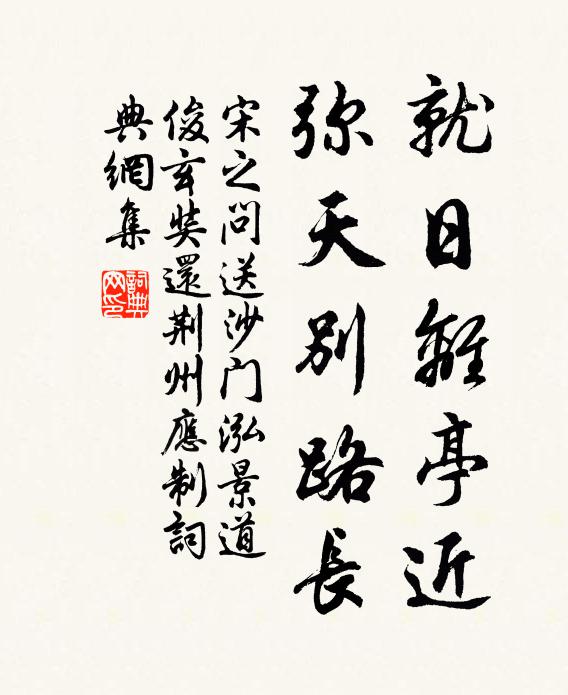 就日離亭近
弥天別路長
宋之問送沙門泓景道
俊玄奘還荆州應制詞
典網集
詞典网印